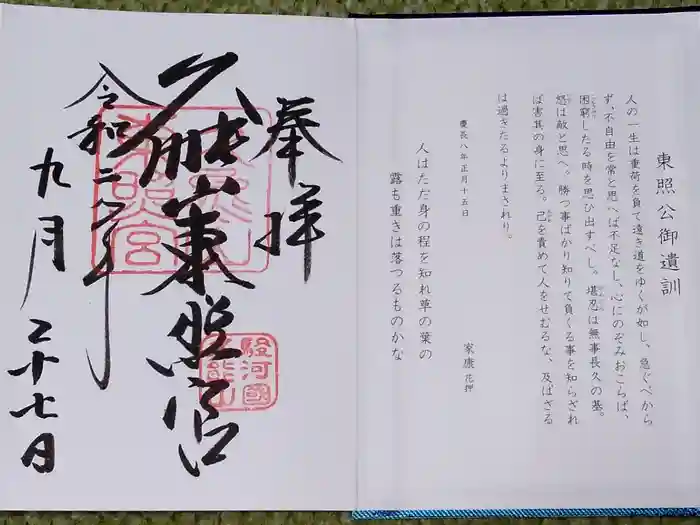 東照公御遺訓
人の一生は重荷を負て遠き道をゆくが如し、急ぐべから
ず、不自由を常と思へば不足なし、心にのぞみおこらば、
困窮したる時を思ひ出すべし。堪忍は無事長久の基。
怒は敵と思へ。勝つ事ばかり知りて負くる事を知らざれ
ば害其の身に至る。己を責めて人をせむるな、及ばざる
は過ぎたるよりまされり。
慶長八年正月十五日
家康 花押
人はただ身の程を知れ草の葉の
露も重きは落つるものかな
奉拝
久能山東照宮
駿河國
久能山
令和二年
九月二十七日